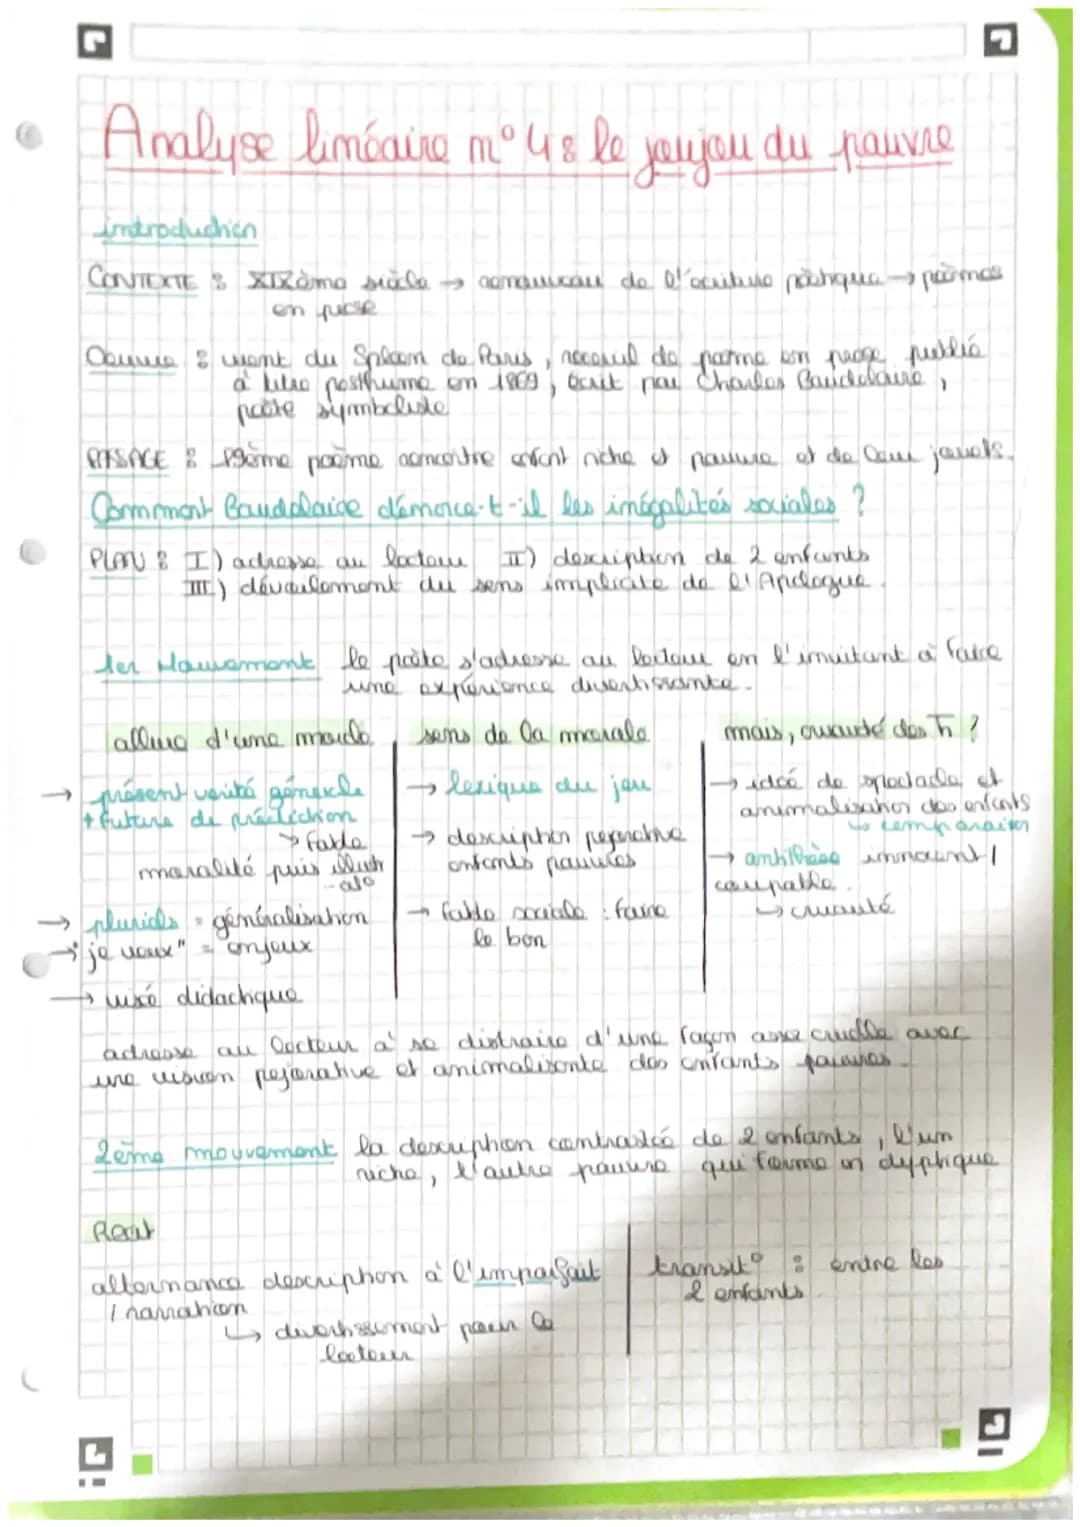 Analyse linéaire n°4 : le joujou du pauvre
introduction
CONTEXTE : XIXème siècle → renouveau de l'écriture poétique → poèmes
en prose
Oeuvre : vient du Spleen de Paris, recueil de poème en prose publié
à titre posthume en 1869, écrit par Charles Baudelaire,
poète symboliste
PASSAGE : 19ème poème rencontre enfant riche et pauvre et de leur jouets.
Comment Baudelaire dénonce-t-il les inégalités sociales ?
PLAN : I) adresse au lecteur II) description de 2 enfants
III) dévoilement du sens implicite de l'Apologue.
1er Mouvement le poète s'adresse au lecteur en l'invitant à faire
une expérience divertissante.
allure d'une morale
sens de la morale
mais, cruauté des ?
→ présent vérité générale
+ futurs de prédiction
→ Fable
moralité puis illustr
-ato
→ pluriels = généralisation
→ "je veux" = enjeux
→ visé didactique
→ lexique du jeu
→ description pejorative
enfants pauvres
→ fable sociale : faire
le bon
→ idée de spectacle et
animalisation des enfants
↳ comparaison
→ antithèse innocent /
coupable.
↳ cruauté
adresse au lecteur à se distraire d'une façon assez cruelle avec
une vision pejorative et animalisante des enfants pauvres.
2ème mouvement la description contrastée de 2 enfants, l'un
riche, l'autre pauvre qui forme un dyptique
Récit
alternance description à l'imparfait
/ narration
↳ divertissement pour le
lecteur
transit° : entre les
2 enfants